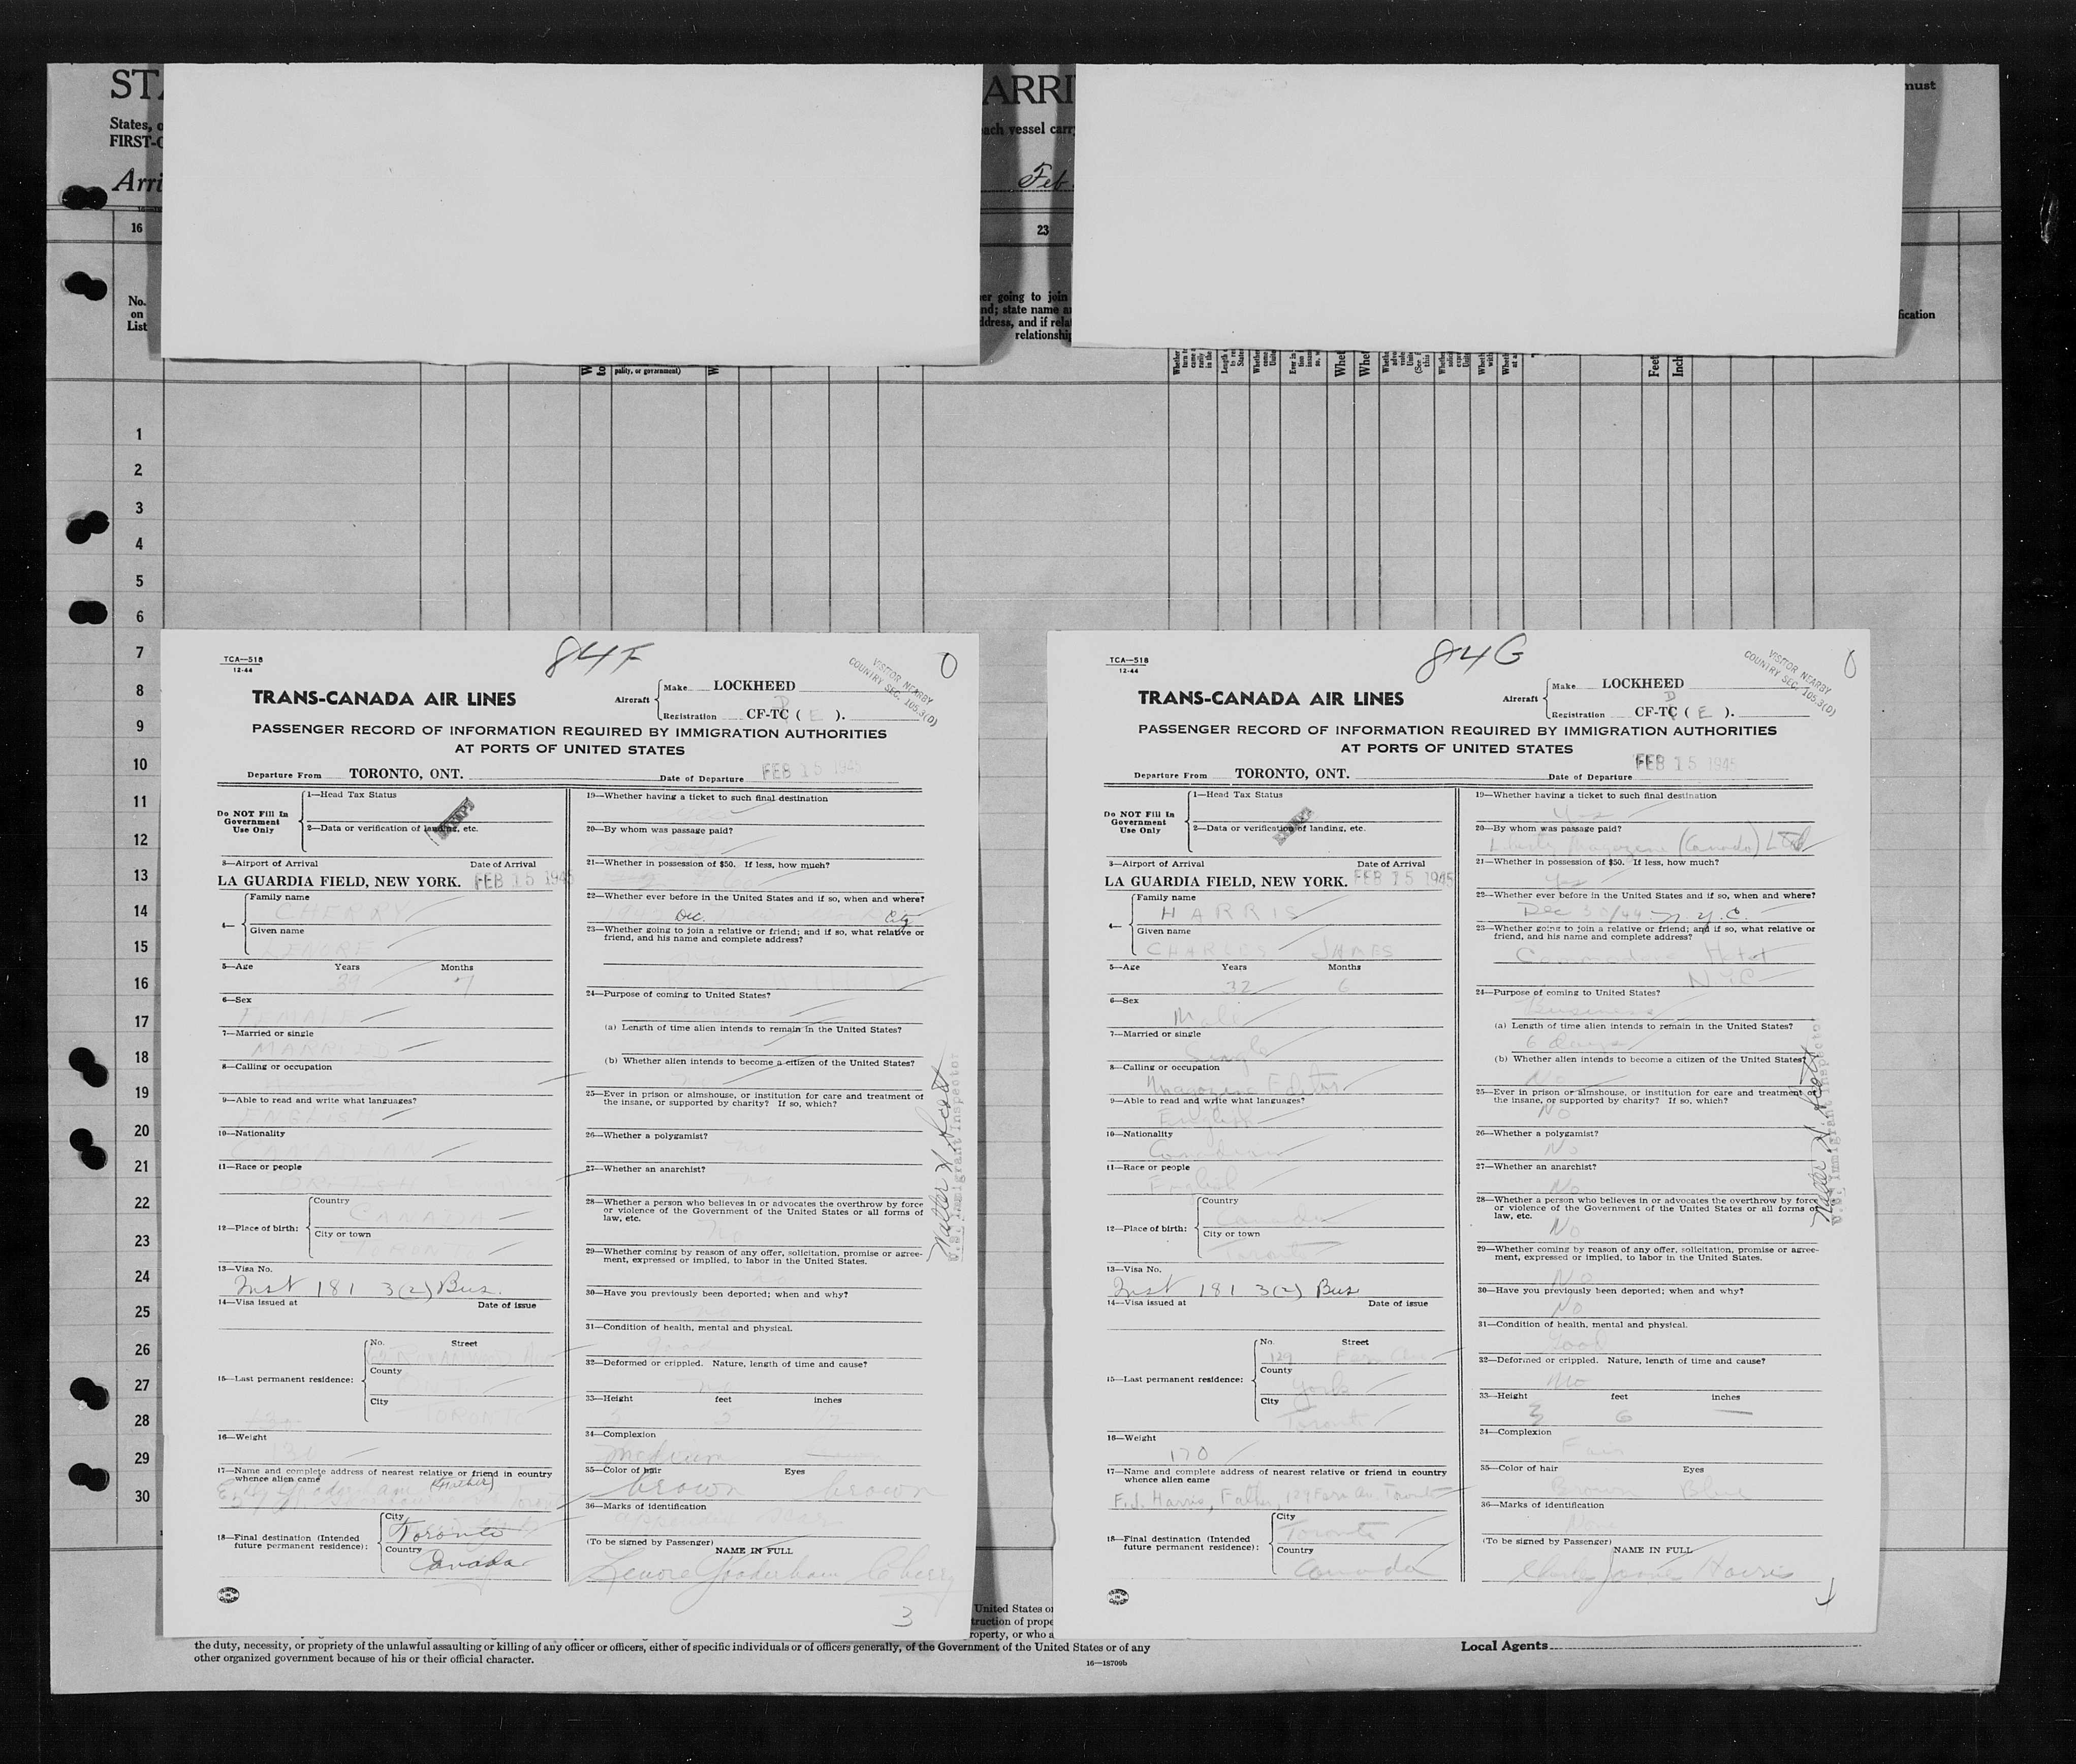 STA
ARRI
must
States, o
FIRST-C
ach vessel carr
Arri
Feb
16
23
No.
on
List
er going to join
nd; state name a
ddress, and if rela
relationship
fication
pality, or government)
Feet
Inch
1
2
3
4
5
6
7
8
9
10
11
12
13
14
15
16
17
18
19
20
21
22
23
24
25
26
27
28
29
30
84F
0
TCA—518
12-44
VISITOR NEARBY
COUNTRY SEC. 105.3(D)
TRANS-CANADA AIR LINES
Aircraft
Make LOCKHEED
Registration CF-TC ( E ).
PASSENGER RECORD OF INFORMATION REQUIRED BY IMMIGRATION AUTHORITIES
AT PORTS OF UNITED STATES
Departure From TORONTO, ONT. Date of Departure FEB 15 1945
Do NOT Fill In
Government
Use Only
1—Head Tax Status
2—Data or verification of landing, etc.
3—Airport of Arrival Date of Arrival
LA GUARDIA FIELD, NEW YORK. FEB 15 1945
4—
Family name
CHERRY
Given name
LENORE
5—Age Years Months
6—Sex
FEMALE
7—Married or single
MARRIED
8—Calling or occupation
9—Able to read and write what languages?
ENGLISH
10—Nationality
CANADIAN
11—Race or people
12—Place of birth:
Country
CANADA
City or town
TORONTO
13—Visa No.
Inst 181 3(2) Bus.
14—Visa issued at Date of issue
15—Last permanent residence:
No. Street
County
City
TORONTO
16—Weight
17—Name and complete address of nearest relative or friend in country
whence alien came
(Father)
18—Final destination (Intended
future permanent residence):
City
Toronto
Country
Canada
19—Whether having a ticket to such final destination
20—By whom was passage paid?
21—Whether in possession of $50. If less, how much?
22—Whether ever before in the United States and if so, when and where?
Dec. City
23—Whether going to join a relative or friend; and if so, what relative or
friend, and his name and complete address?
24—Purpose of coming to United States?
(a) Length of time alien intends to remain in the United States?
(b) Whether alien intends to become a citizen of the United States?
25—Ever in prison or almshouse, or institution for care and treatment of
the insane, or supported by charity? If so, which?
26—Whether a polygamist?
no
27—Whether an anarchist?
no
28—Whether a person who believes in or advocates the overthrow by force
or violence of the Government of the United States or all forms of
law, etc.
no
29—Whether coming by reason of any offer, solicitation, promise or agree-
ment, expressed or implied, to labor in the United States.
no
30—Have you previously been deported; when and why?
31—Condition of health, mental and physical.
good
32—Deformed or crippled. Nature, length of time and cause?
no
33—Height feet inches
34—Complexion
medium
35—Color of hair Eyes
brown brown
36—Marks of identification
(To be signed by Passenger)
NAME IN FULL
Lenore Gooderham Cherry
3
Walter H. Scott
U.S. Immigrant Inspector
84G
0
TCA—518
12-44
VISITOR NEARBY
COUNTRY SEC. 105.3(D)
TRANS-CANADA AIR LINES
Aircraft
Make LOCKHEED
Registration CF-TC ( E ).
PASSENGER RECORD OF INFORMATION REQUIRED BY IMMIGRATION AUTHORITIES
AT PORTS OF UNITED STATES
Departure From TORONTO, ONT. Date of Departure FEB 15 1945
Do NOT Fill In
Government
Use Only
1—Head Tax Status
2—Data or verification of landing, etc.
3—Airport of Arrival Date of Arrival
LA GUARDIA FIELD, NEW YORK. FEB 15 1945
4—
Family name
HARRIS
Given name
CHARLES JAMES
5—Age Years Months
32 6
6—Sex
Male
7—Married or single
Single
8—Calling or occupation
Magazine Editor
9—Able to read and write what languages?
English
10—Nationality
Canadian
11—Race or people
English
12—Place of birth:
Country
Canada
City or town
Toronto
13—Visa No.
Inst 181 3(2) Bus
14—Visa issued at Date of issue
15—Last permanent residence:
No. Street
129 Fern Ave
County
York
City
Toronto
16—Weight
170
17—Name and complete address of nearest relative or friend in country
whence alien came
F.J. Harris, Father, 129 Fern Av. Toronto
18—Final destination (Intended
future permanent residence):
City
Toronto
Country
Canada
19—Whether having a ticket to such final destination
Yes
20—By whom was passage paid?
Liberty Magazine (Canada) Ltd
21—Whether in possession of $50. If less, how much?
Yes
22—Whether ever before in the United States and if so, when and where?
Dec 30/44 N.Y.C.
23—Whether going to join a relative or friend; and if so, what relative or
friend, and his name and complete address?
Commodore Hotel
NYC
24—Purpose of coming to United States?
Business
(a) Length of time alien intends to remain in the United States?
6 days
(b) Whether alien intends to become a citizen of the United States?
No
25—Ever in prison or almshouse, or institution for care and treatment of
the insane, or supported by charity? If so, which?
No
26—Whether a polygamist?
No
27—Whether an anarchist?
No
28—Whether a person who believes in or advocates the overthrow by force
or violence of the Government of the United States or all forms of
law, etc.
No
29—Whether coming by reason of any offer, solicitation, promise or agree-
ment, expressed or implied, to labor in the United States.
No
30—Have you previously been deported; when and why?
No
31—Condition of health, mental and physical.
Good
32—Deformed or crippled. Nature, length of time and cause?
No
33—Height feet inches
6
34—Complexion
Fair
35—Color of hair Eyes
Brown Blue
36—Marks of identification
None
(To be signed by Passenger)
NAME IN FULL
Charles James Harris
Walter H. Scott
U.S. Immigrant Inspector
United States or
truction of prope
roperty, or who a
the duty, necessity, or propriety of the unlawful assaulting or killing of any officer or officers, either of specific individuals or of officers generally, of the Government of the United States or of any
other organized government because of his or their official character.
Local Agents
16—18709b